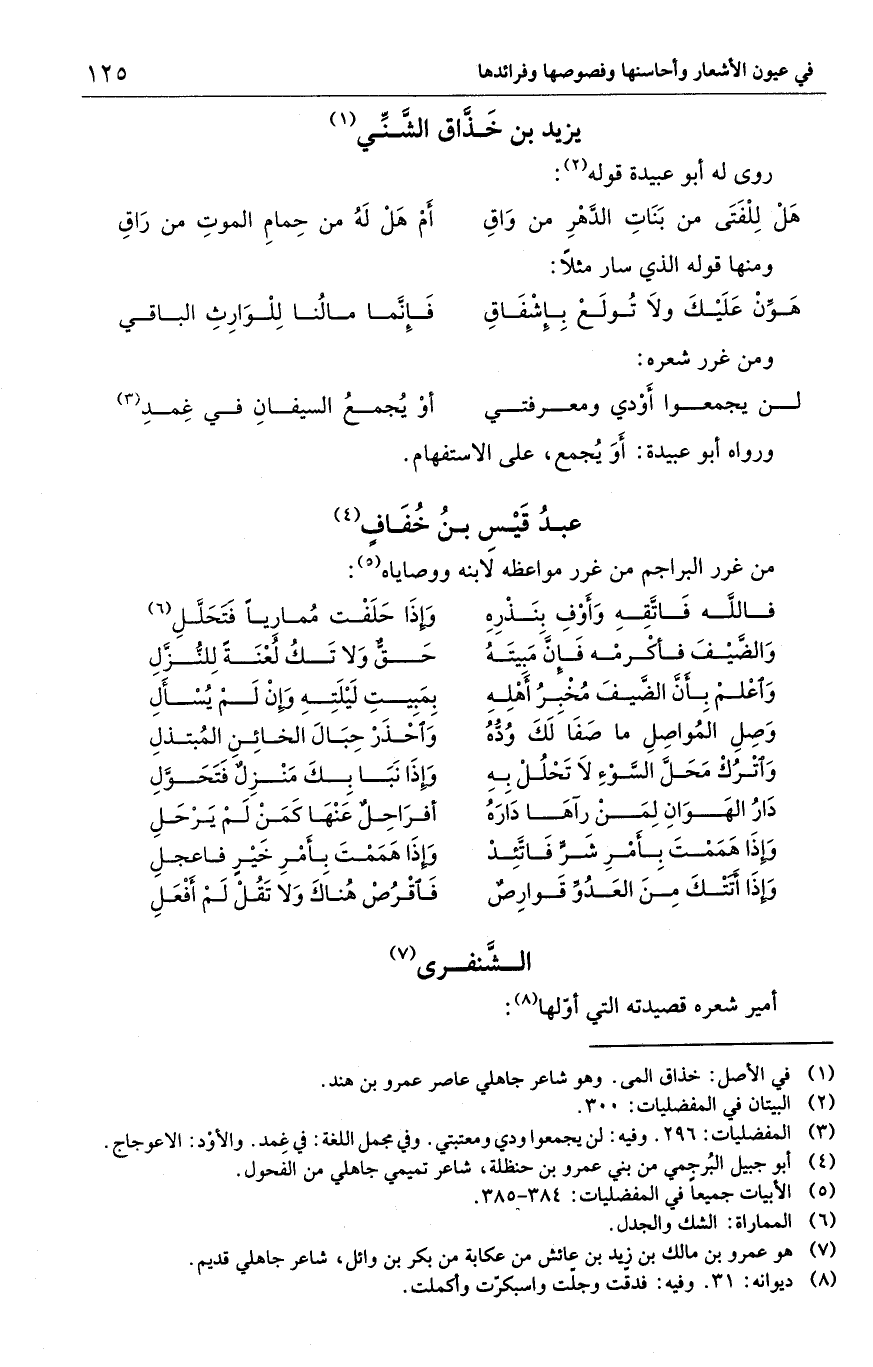 في عيون الأشعار وأحاسنها وفصوصها وفرائدها ١٢٥
يزيد بن خَذَّاق الشَّنِّي(١)
روى له أبو عبيدة قوله(٢):
هَلْ لِلْفَتَى من بَنَاتِ الدَّهْرِ من وَاقِ أَمْ هَلْ لَهُ من حِمامِ الموتِ من رَاقِ
ومنها قوله الذي سار مثلاً:
هَوِّنْ عَلَيْكَ ولاَ تُولَعْ بِإِشْفَاقِ فَإِنَّما مالُنا لِلْوَارِثِ الباقي
ومن غرر شعره:
لن يجمعوا أَوْدي ومعرفتي أوْ يُجمعُ السيفانِ في غِمدِ(٣)
ورواه أبو عبيدة: أَوَ يُجمع، على الاستفهام.
عبدُ قَيْسِ بنُ خُفَافٍ(٤)
من غرر البراجم من غرر مواعظه لابنه ووصاياه(٥):
فاللَّه فَاتَّقِهِ وَأَوْفِ بِنَذْرِهِ وَإِذَا حَلَفْت مُمارياً فَتَحَلَّلِ(٦)
وَالضَّيْفَ فأكْرِمْه فَإِنَّ مَبِيتَهُ حَقٌّ وَلاَ تَكُ لُعْنَةً للنُّزَّلِ
وَٱعْلمْ بِأَنَّ الضَّيفَ مُخْبِرُ أَهْلِهِ بِمَبِيتِ لَيْلَتِهِ وَإِنْ لَمْ يُسْأَلِ
وَصِلِ المُواصِلِ ما صَفَا لَكَ وُدُّهُ وَٱحْذَرْ حِبَالَ الخائِنِ المُبتذلِ
وَٱتْرُكْ مَحَلَّ السَّوْءِ لاَ تَحْلُلْ بِهِ وَإِذَا نَبَا بِكَ مَنْزِلٌ فَتَحَوَّلِ
دَارُ الهَوَانِ لِمَنْ رآهَا دَارَهُ أفرَاحِلٌ عَنْهَا كَمَنْ لَمْ يَرْحَلِ
وَإِذَا هَمَمْتَ بِأَمْرِ شَرٍّ فَاتَّئِدْ وَإِذَا هَمَمْتَ بأَمْرِ خَيْرٍ فاعجلِ
وَإِذَا أَتَتْكَ مِنَ العَدُوِّ قوارِصٌ فَٱقْرُصْ هُناكَ وَلاَ تَقُلْ لَمْ أَفْعَلِ
الشَّنفرى(٧)
أمير شعره قصيدته التي أوّلها(٨):
(١) في الأصل: خذاق المى. وهو شاعر جاهلي عاصر عمرو بن هند.
(٢) البيتان في المفضليات: ٣٠٠.
(٣) المفضليات: ٢٩٦. وفيه: لن يجمعوا ودي ومعتبتي. وفي مجمل اللغة: في غِمد. والأوْد: الاعوجاج.
(٤) أبو جبيل البُرجمي من بني عمرو بن حنظلة، شاعر تميمي جاهلي من الفحول.
(٥) الأبيات جميعاً في المفضليات: ٣٨٤-٣٨٥.
(٦) المماراة: الشك والجدل.
(٧) هو عمرو بن مالك بن زيد بن عائش من عكابة من بكر بن وائل، شاعر جاهلي قديم.
(٨) ديوانه: ٣١. وفيه: فدقّت وجلّت واسبكرّت وأكملت.